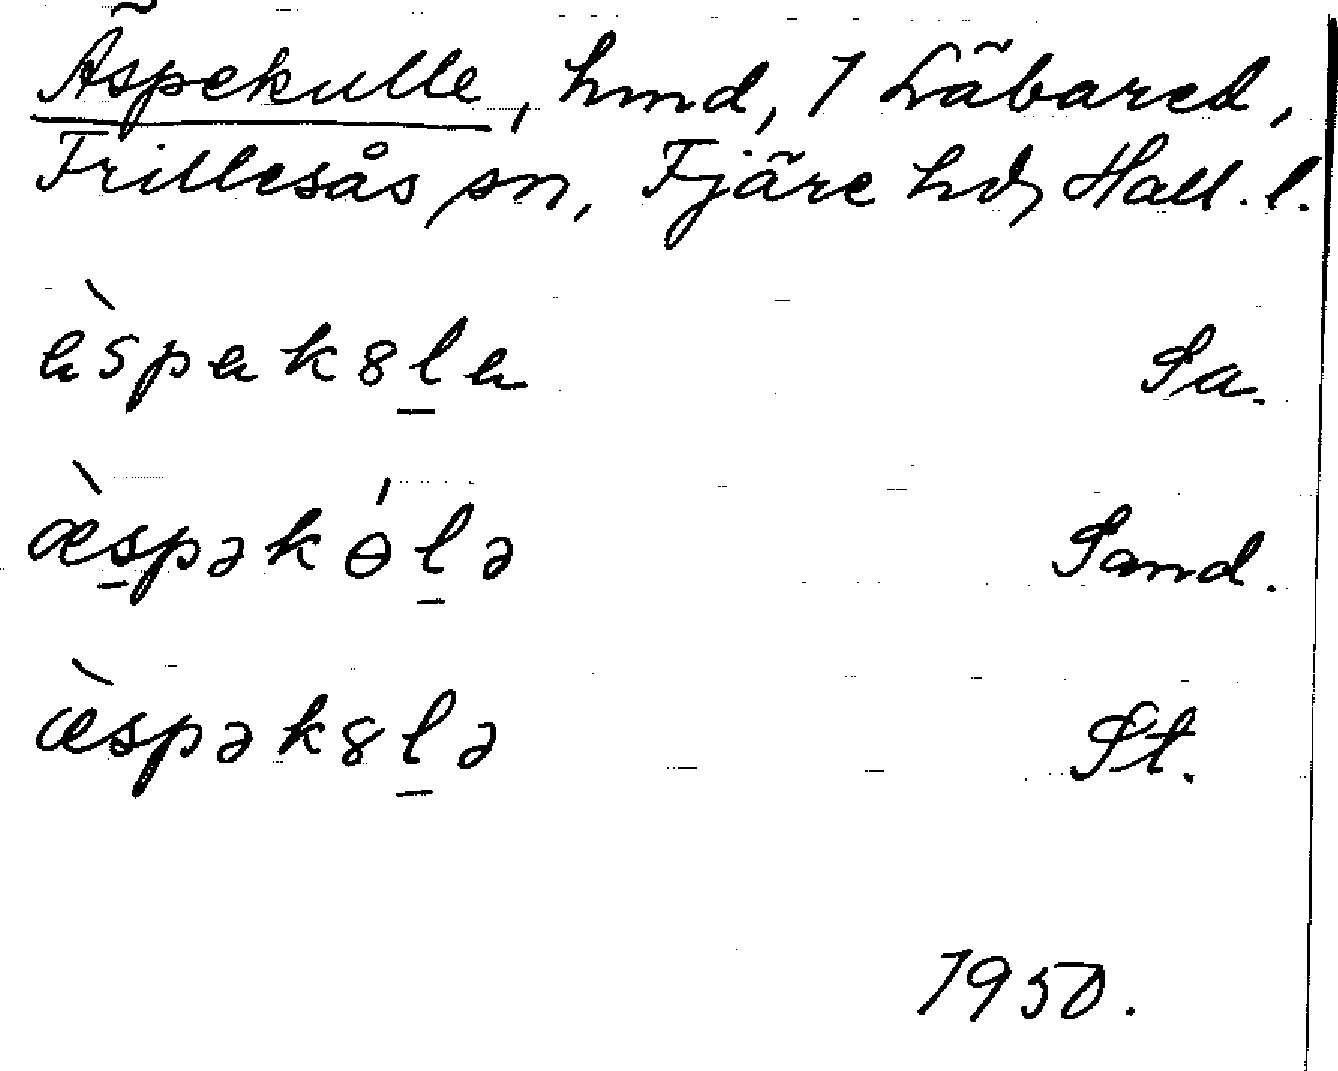 Äspekulle, hmd, 1 Läbared,
Frillesås sn, Fjäre hd, Hall. l.
àspakȣl̠a Sa.
æ̀s̠pəkɵ́l̠ə Sand.
æ̀spəkȣl̠ə St.
1950.